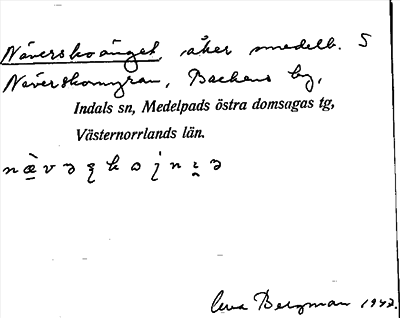 Näverskoänget, åker omedelb. S
Näverskomyran, Backens by,
Indals sn, Medelpads östra domsagas tg,
Västernorrlands län.
Bergman